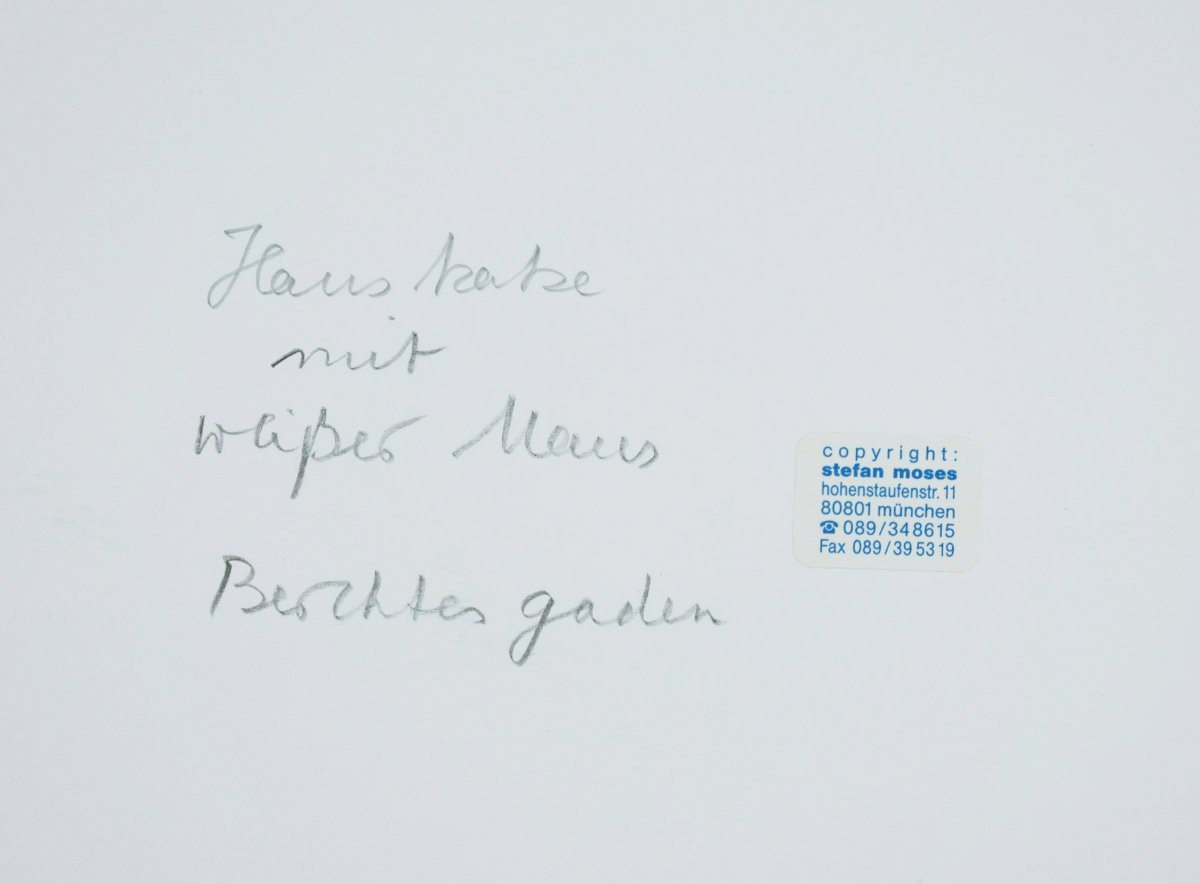 Hauskatze
mit
weißer Maus
Berchtesgaden
copyright:
stefan moses
hohenstaufenstr. 11
80801 münchen
☎ 089/348615
Fax 089/395319